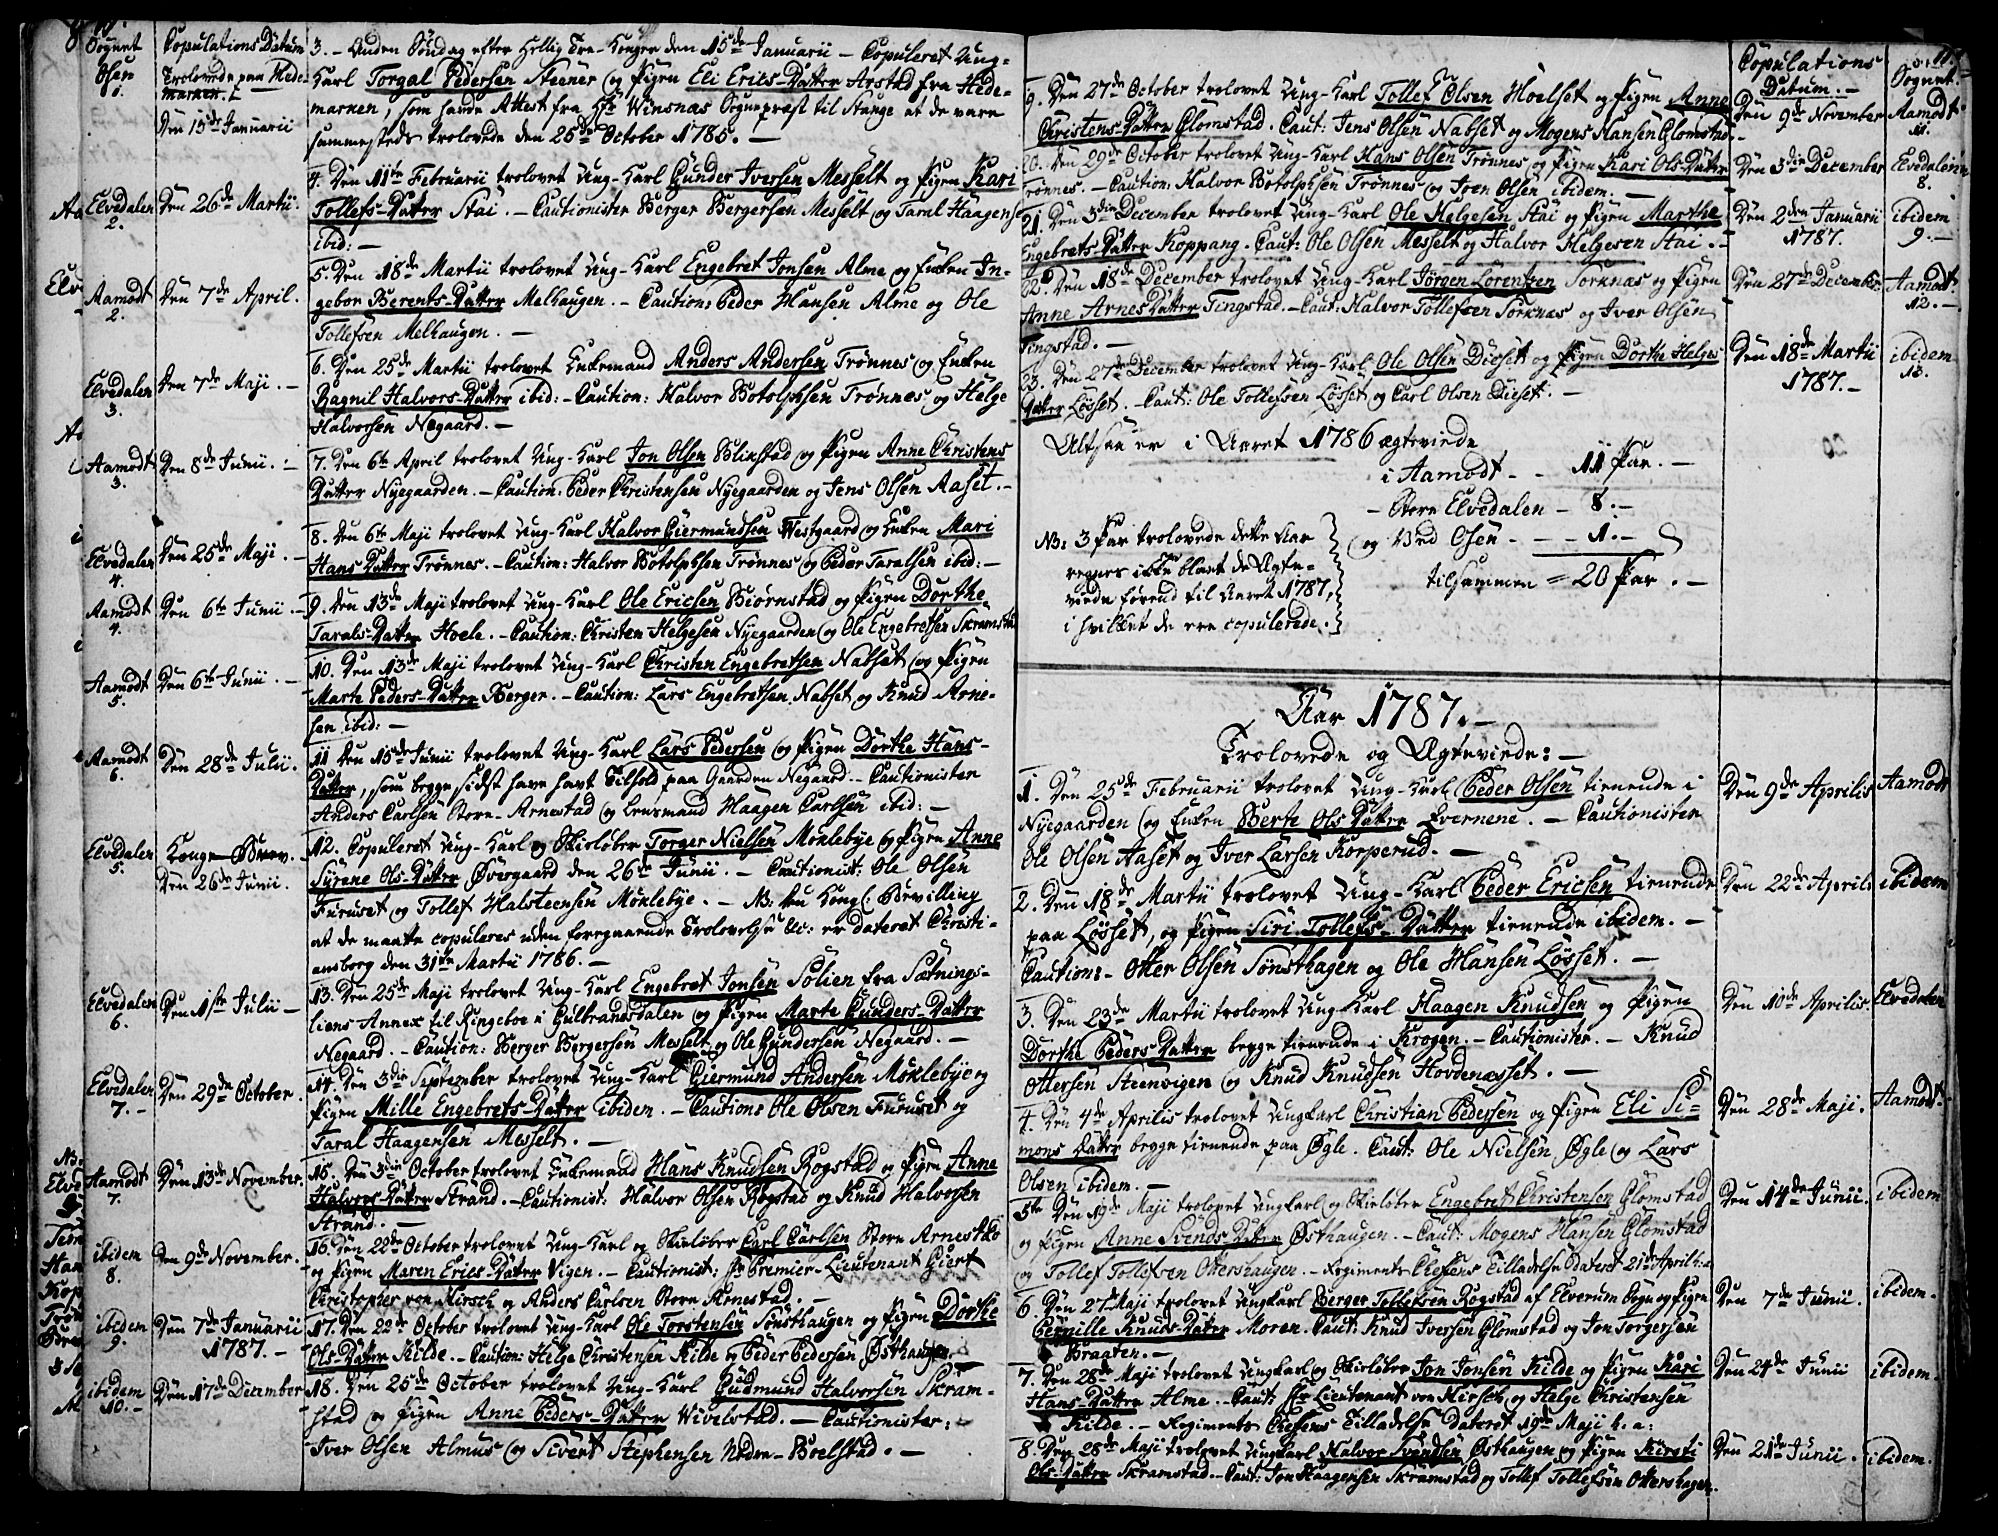 Sognet
Osen
1.
Copulations Datum
Trolovede paa Hede-
marken.
Den 15de Januarii
3. - Anden Söndag efter Hellig Tre-Konger den 15de Januarii - Copuleret Ung-
Karl Torgal Pedersen Steener og Pigen Eli Erics-Datter Arstad fra Hede-
marken, som havde Attest fra Hr Winsnæs Sognepræst til Stange at de vare
sammesteds trolovede den 25de October 1785. -
Elvedalen
2.
Den 26de Martii.
4. Den 11te Februarii trolovet Ung-Karl Gunder Iversen Messelt og Pigen Kari
Tollefs-Datter Stai. - Cautionister Berger Bergersen Messelt og Taral Haagensen
ibid: -
Aamodt
2.
Den 7de April.
5. Den 18de Martii trolovet Ung-Karl Engebret Jonsen Alme og Enken In-
gebor Berents-Datter Melhaugen. - Caution: Peder Hansen Alme og Ole
Tollefsen Melhaugen. -
Elvedalen
3.
Den 7de Maji. -
6. Den 25de Martii trolovet Enkemand Anders Andersen Trønnes og Enken
Ragnil Halvors-Datter ibid: - Caution: Halvor Botolphsen Trønnes og Helge
Halvorsen Negaard. -
Aamodt
3.
Den 8de Junii. -
7. Den 6te April trolovet Ung-Karl Jon Olsen Blikstad og Pigen Anne Christens
Datter Nyegaarden. - Caution: Peder Christensen Nyegaarden og Jens Olsen Aaset. -
Elvedalen
4.
Den 25de Maji. -
8. Den 6te Maji trolovet Ung-Karl Halvor Giermundsen Westgaard og Enken Mari
Hans Datter Trønnes. - Caution: Halvor Botolphsen Trønnes og Peder Taralsen ibid: -
Aamodt
4.
Den 6te Junii. -
9. Den 13de Maji trolovet Ung-Karl Ole Ericsen Biørnstad og Pigen Dorthe
Tarals-Datter Hoele. - Caution: Christen Helgesen Nyegaarden og Ole Engebretsen Skramstad
Aamodt
5.
Den 6te Junii. -
10. Den 13de Maji trolovet Ung-Karl Christen Engebretsen Nabset og Pigen
Marte Peders-Datter Berger. - Caution: Lars Engebretsen Nabset og Knud Arne-
sen ibid: -
Aamodt
6.
Den 28de Julii.
11 Den 15de Junii trolovet Ung-Karl Lars Pedersen og Pigen Dorthe Hans-
Datter, som begge sidst have havt Tilhold paa Gaarden Negaard. - Cautionister
Anders Carlsen Store-Arnestad og Lensmand Haagen Carlsen ibid: -
Elvedalen
5.
Konge-Brev. -
Den 26de Junii.
12. Copuleret Ung-Karl og Skieløber Torger Nielsen Møklebye og Pigen Anne
Syrene Ols-Datter Øvergaard den 26de Junii. - Cautionist: Ole Olsen
Furuset og Tollef Halsteensen Møklebye. - NB: den Kongl: Bevilling
at de maatte copuleres uden foregaaende Trolovelse &c: er dateret Christi-
ansborg den 31te Martii 1786. -
Elvedalen
6.
Den 1ste Julii -
13. Den 25de Maji trolovet Ung-Karl Engebret Jonsen Solien fra Sætnings-
liens Annex til Ringeboe i Gulbrandsdalen og Pigen Marte Gunders-Datter
Negaard. - Caution: Berger Bergersen Messelt og Ole Gundersen Negaard. -
Elvedalen
7. -
Den 29de October.
14. Den 3die September trolovet Ung-Karl Giermund Andersen Møklebye og
Pigen Mille Engebrets-Datter ibidem. - Caution: Ole Olsen Furuset og
Taral Haagensen Messelt. -
Aamodt
7.
Den 13de November.
15. Den 3die October trolovet Enkemand Hans Knudsen Rogstad og Pigen Anne
Halvors-Datter Strand. - Cautionist: Halvor Olsen Rogstad og Knud Halvorsen
Strand. -
ibidem
8.
Den 9de November.
16. Den 22de October trolovet Ung-Karl og Skieløber Carl Carlsen Store Arnestad
og Pigen Maren Erics-Datter Vigen. - Cautionist: Hr Premier-Lieutenant Giert
Christopher von Hirsch og Anders Carlsen Store Arnestad. -
ibidem
9.
Den 7de Januarii
1787. -
17. Den 22de October trolovet Ung-Karl Ole Torstensen Sønsthaugen og Pigen Dorthe
Ols-Datter Kilde. - Caution: Helge Christensen Kilde og Peder Pedersen Østhaugen
ibidem
10. -
Den 17de December
18. Den 25de October trolovet Ung-Karl Gudmund Halvorsen Skram-
stad og Pigen Anne Peders-Datter Wivelstad. - Cautionister:
Iver Olsen Almus og Sivert Stephensen Nedre-Boelstad. -
Copulations
Datum. -
Sognet
19. Den 27de October trolovet Ung-Karl Tollef Olsen Hoelset og Pigen Anne
Christens-Datter Glomstad. Caut: Jens Olsen Nabset og Mogens Hansen Glomstad. -
Den 9de November
Aamodt
11.
20. Den 29de October trolovet Ung-Karl Hans Olsen Trønnes og Pigen Kari Ols-Datter
Trønnes. - Caution: Halvor Botolphsen Trønnes og Joen Olsen ibidem. -
Den 3die December
Elvedalen
8.
21. Den 3die December trolovet Ung-Karl Ole Helgesen Stai og Pigen Marthe
Engebrets-Datter Koppang. Caut: Ole Olsen Messelt og Halvor Helgesen Stai. -
Den 2den Januarii
1787.
ibidem
9. -
22. Den 18de December trolovet Ung-Karl Jörgen Lorentzen Torknæs og Pigen
Anne Arnes Datter Tingstad. - Caut: Halvor Tollefsen Torknæs og Iver Olsen
Tingstad. -
Den 27de December
Aamodt
12. -
23. Den 27de December trolovet Ung-Karl Ole Olsen Dieset og Pigen Dorthe Helges
Datter Løsset. - Caut: Ole Tollefsen Løsset og Carl Olsen Dieset. -
Den 18de Martii
1787. -
ibidem
13.
Altsaa er i Aaret 1786 ægteviede
i Aamodt - - 11 Par. -
- Store Elvedalen - 8. -
og Ved Osen - - - 1. -
tilsammen = 20 Par. -
NB: 3 Par trolovede dette Aar
regnes ikke blant de Ægte-
viede førend til Aaret 1787,
i hvilket de ere copulerede.
Aar 1787. -
Trolovede og Ægteviede: -
1. Den 25de Februarii trolovet Ung-Karl Peder Olsen tienende i
Nyegaarden og Enken Berte Ols Datter Evernene. - Cautionister
Ole Olsen Aaset og Iver Larsen Korperud. -
Den 9de Aprilis
Aamodt
2. Den 18de Martii trolovet Ung-Karl Peder Ericsen tienende
paa Løsset, og Pigen Siri Tollefs-Datter tienende ibidem. -
Caution: - Otter Olsen Sønsthagen og Ole Hansen Løsset. -
Den 22de Aprilis
ibidem
3. Den 23de Martii trolovet Ung-Karl Haagen Knudsen og Pigen
Dorthe Peders Datter begge tienende i Krogen. - Cautionister. - Knud
Ottersen Steenvigen og Knud Knudsen Hovdenæsset. -
Den 10de Aprilis.
Elvedalen
4. Den 4de Aprilis trolovet Ungkarl Christian Pedersen og Pigen Eli Si-
mons Datter begge tienende paa Øgle. Caut: Ole Nielsen Øgle og Lars
Olsen ibidem. -
Den 28de Maji.
Aamodt.
5te Den 19de Maji trolovet Ungkarl og Skieløber Engebret Christensen Glomstad
og Pigen Anne Svends-Datter Østhaugen. - Caut: Mogens Hansen Glomstad
og Tollef Tollefsen Ottershaugen. - Regiments Chefens Tilladelse dateret 21de April h:a:
Den 14de Junii.
ibidem
6. Den 27de Maji trolovet Ungkarl Berger Tollefsen Rogstad af Elverum Sogn og Pigen
Pernille Knuds-Datter Moren. Caut: Knud Iversen Glomstad og Jon Torgersen
Braaten. -
Den 7de Junii.
ibidem.
7. Den 28de Maji trolovet Ungkarl og Skieløber Jon Jonsen Kilde og Pigen Kari
Hans-Datter Alme. - Caut: Hr Lieutenant von Hirsch og Helge Christensen
Kilde. - Regiments Chefens Tilladelse dateret 19de Maji h: a:
Den 24de Junii
ibidem.
8. Den 28de Maji trolovet Ungkarl Halvor Svendsen Østhaugen og Pigen Kirsti
Ols-Datter Skramstad. - Caut: Jon Haagensen Skramstad og Tollef Tollefsen Ottershagen.
Den 21de Junii.
ibidem.